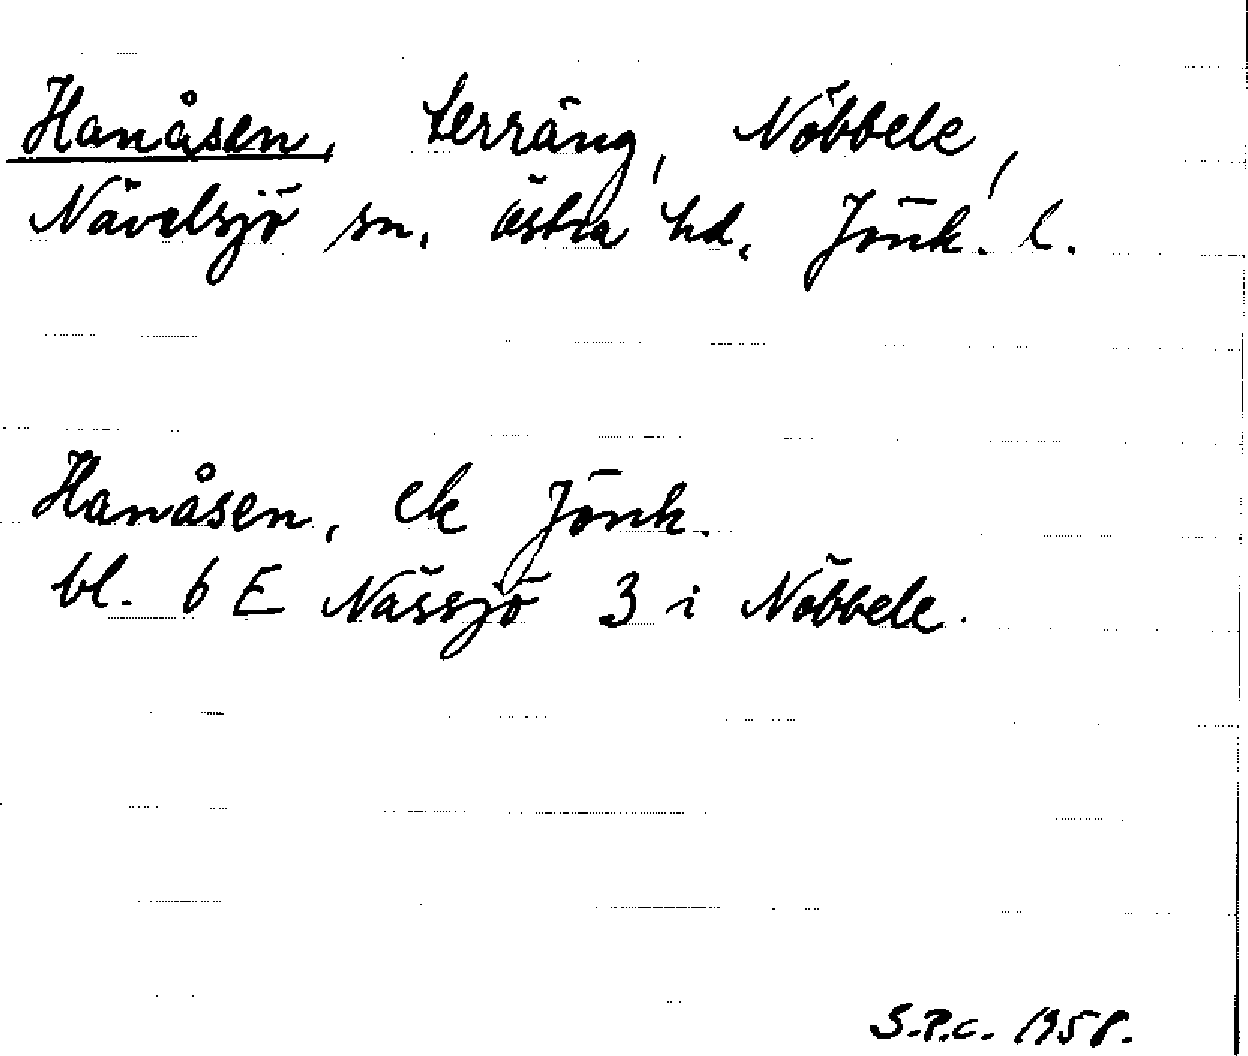 Hanåsen, terräng, Nöbbele,
Nävelsjö sn. östra hd. Jönk. l.
Hanåsen, ek Jönk.
bl. 6 E Nässjö 3 i Nöbbele.
S.P.C. 1958.